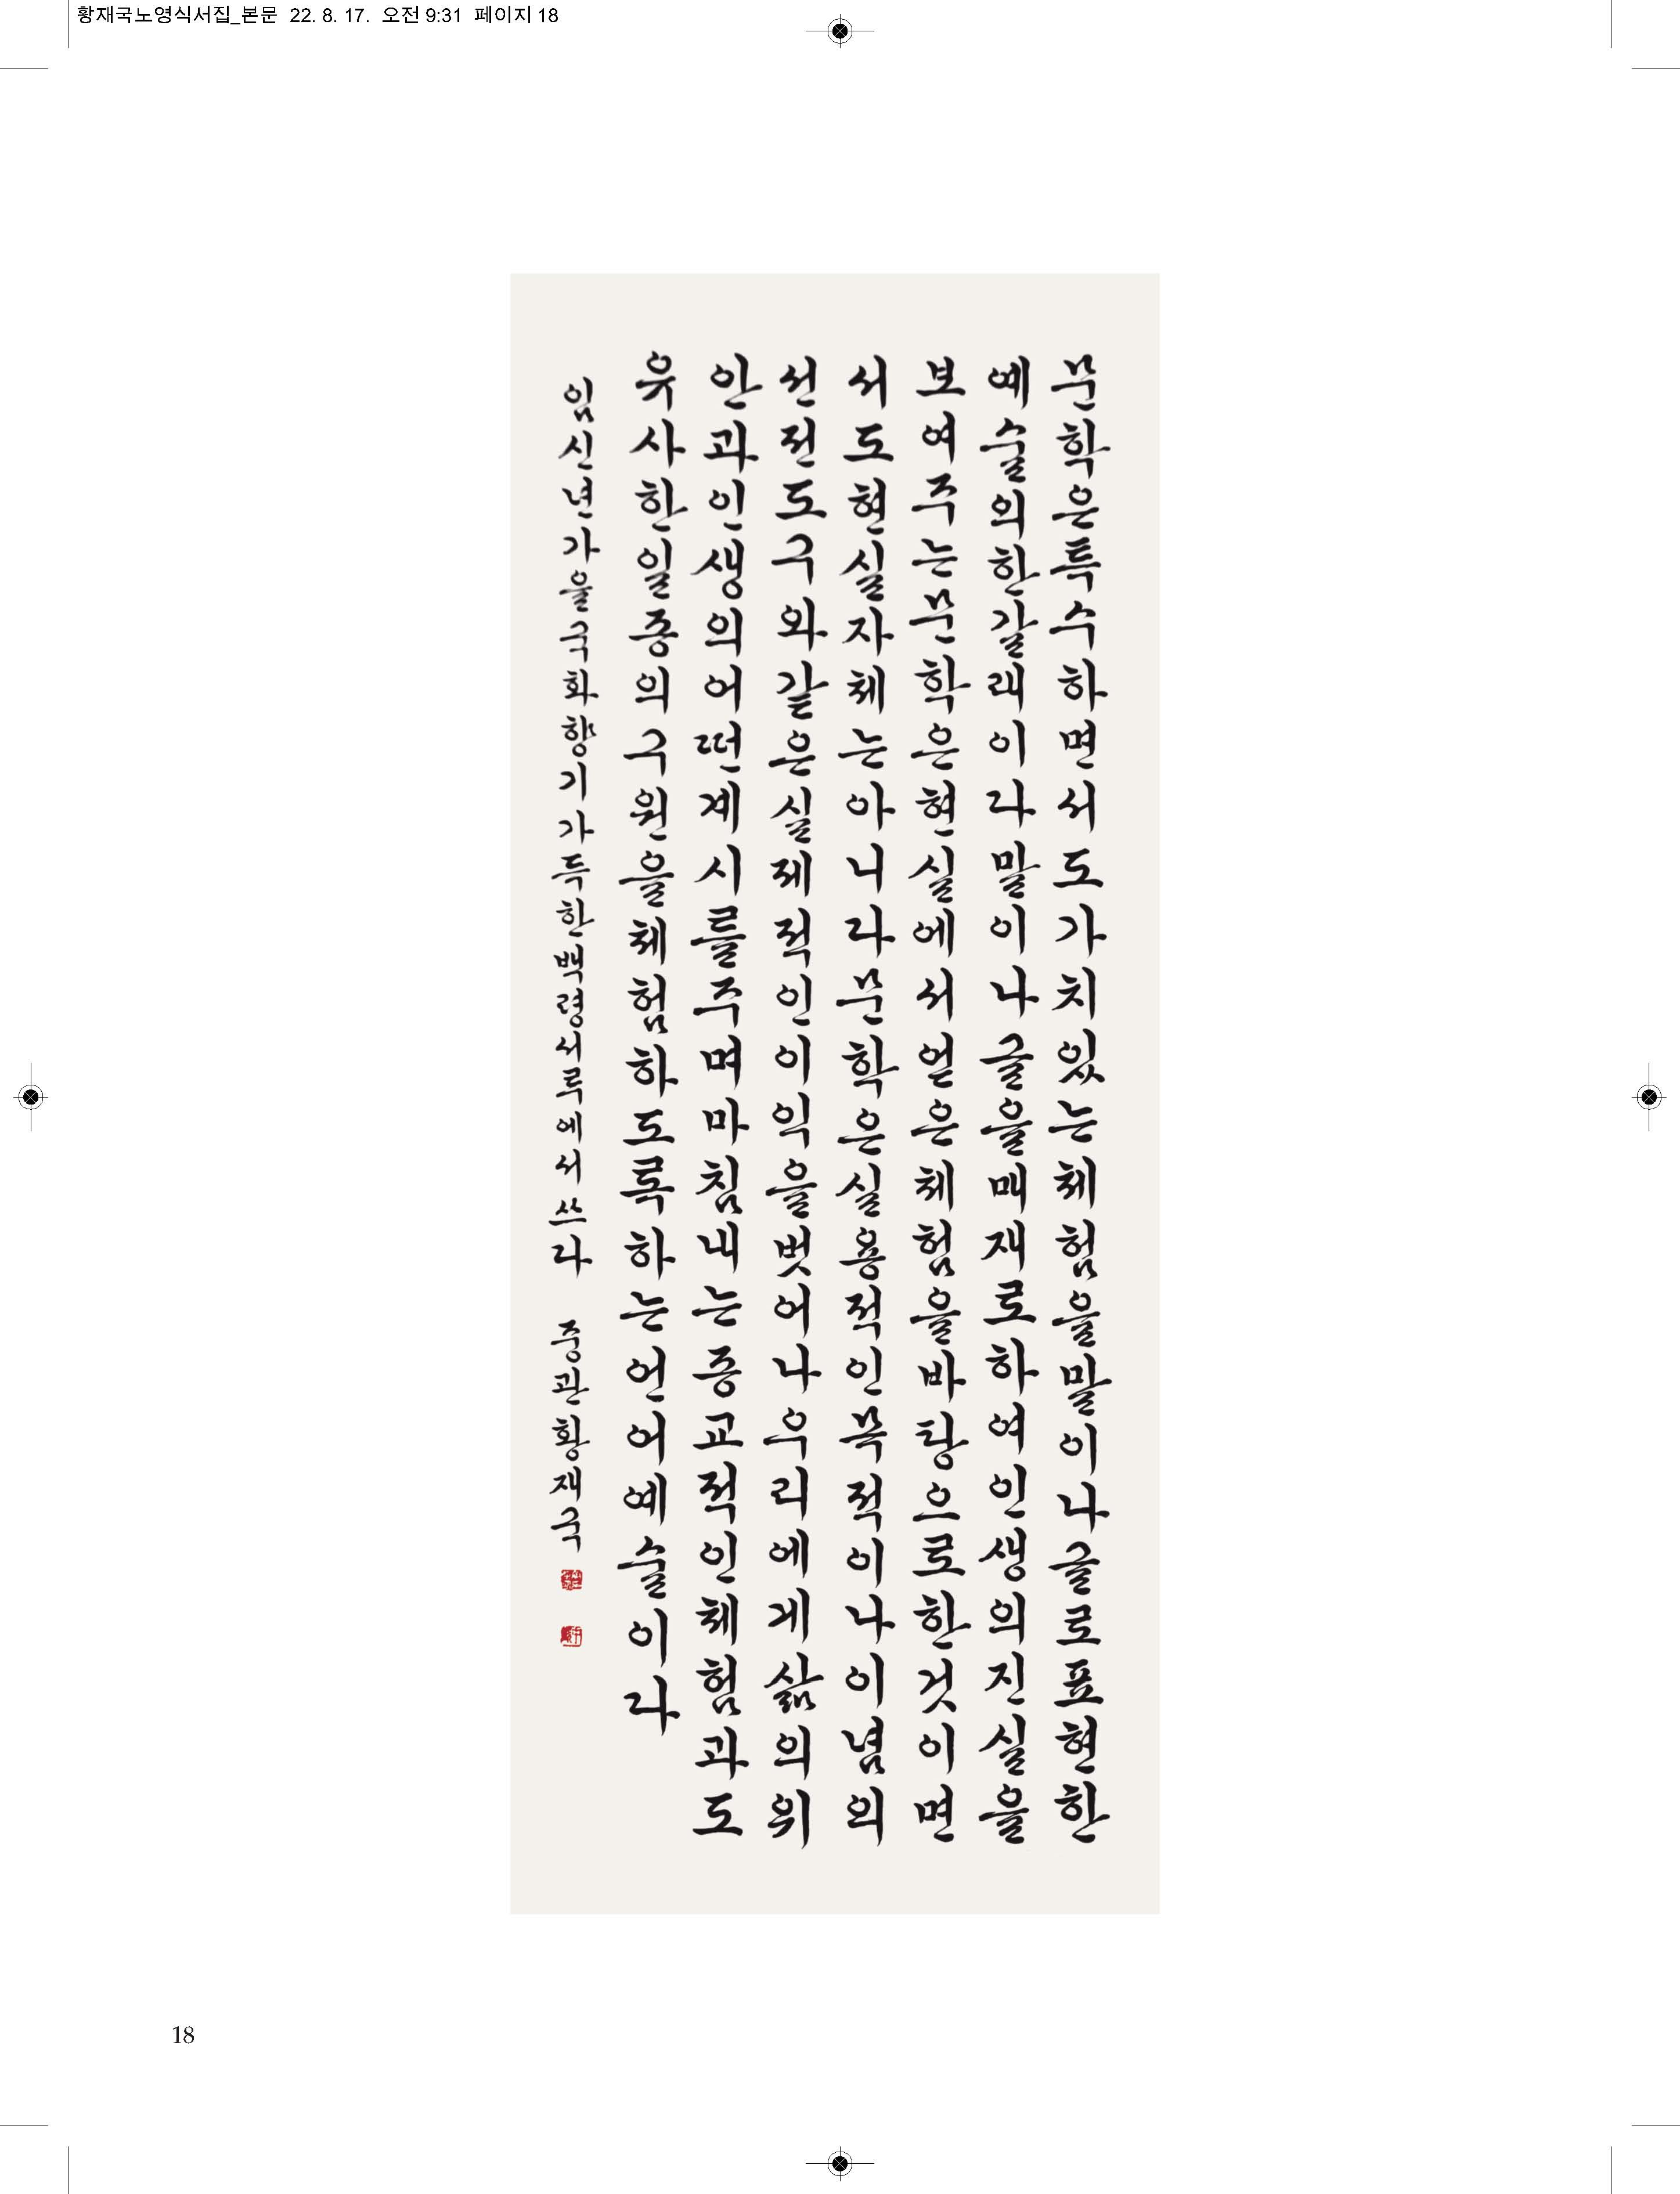 황재국노영식서집_본문 22. 8. 17. 오전 9:31 페이지 18
문학은특수하면서도가치있는체험을말이나글로표현한
예술의한갈래이라말이나글을매재로하여인생의진실을
보여주는문학은현실에서얻은체험을바탕으로한것이면
서도현실자체는아니라문학은실용적인목적이나이념의
선전도구와같은실제적인이익을벗어나우리에게삶의위
안과인생의어떤계시를주며마침내는종교적인체험과도
유사한일종의구원을체험하도록하는언어예술이라
임신년가을국화향기가득한백령서루에서쓰다 중관황재국
18